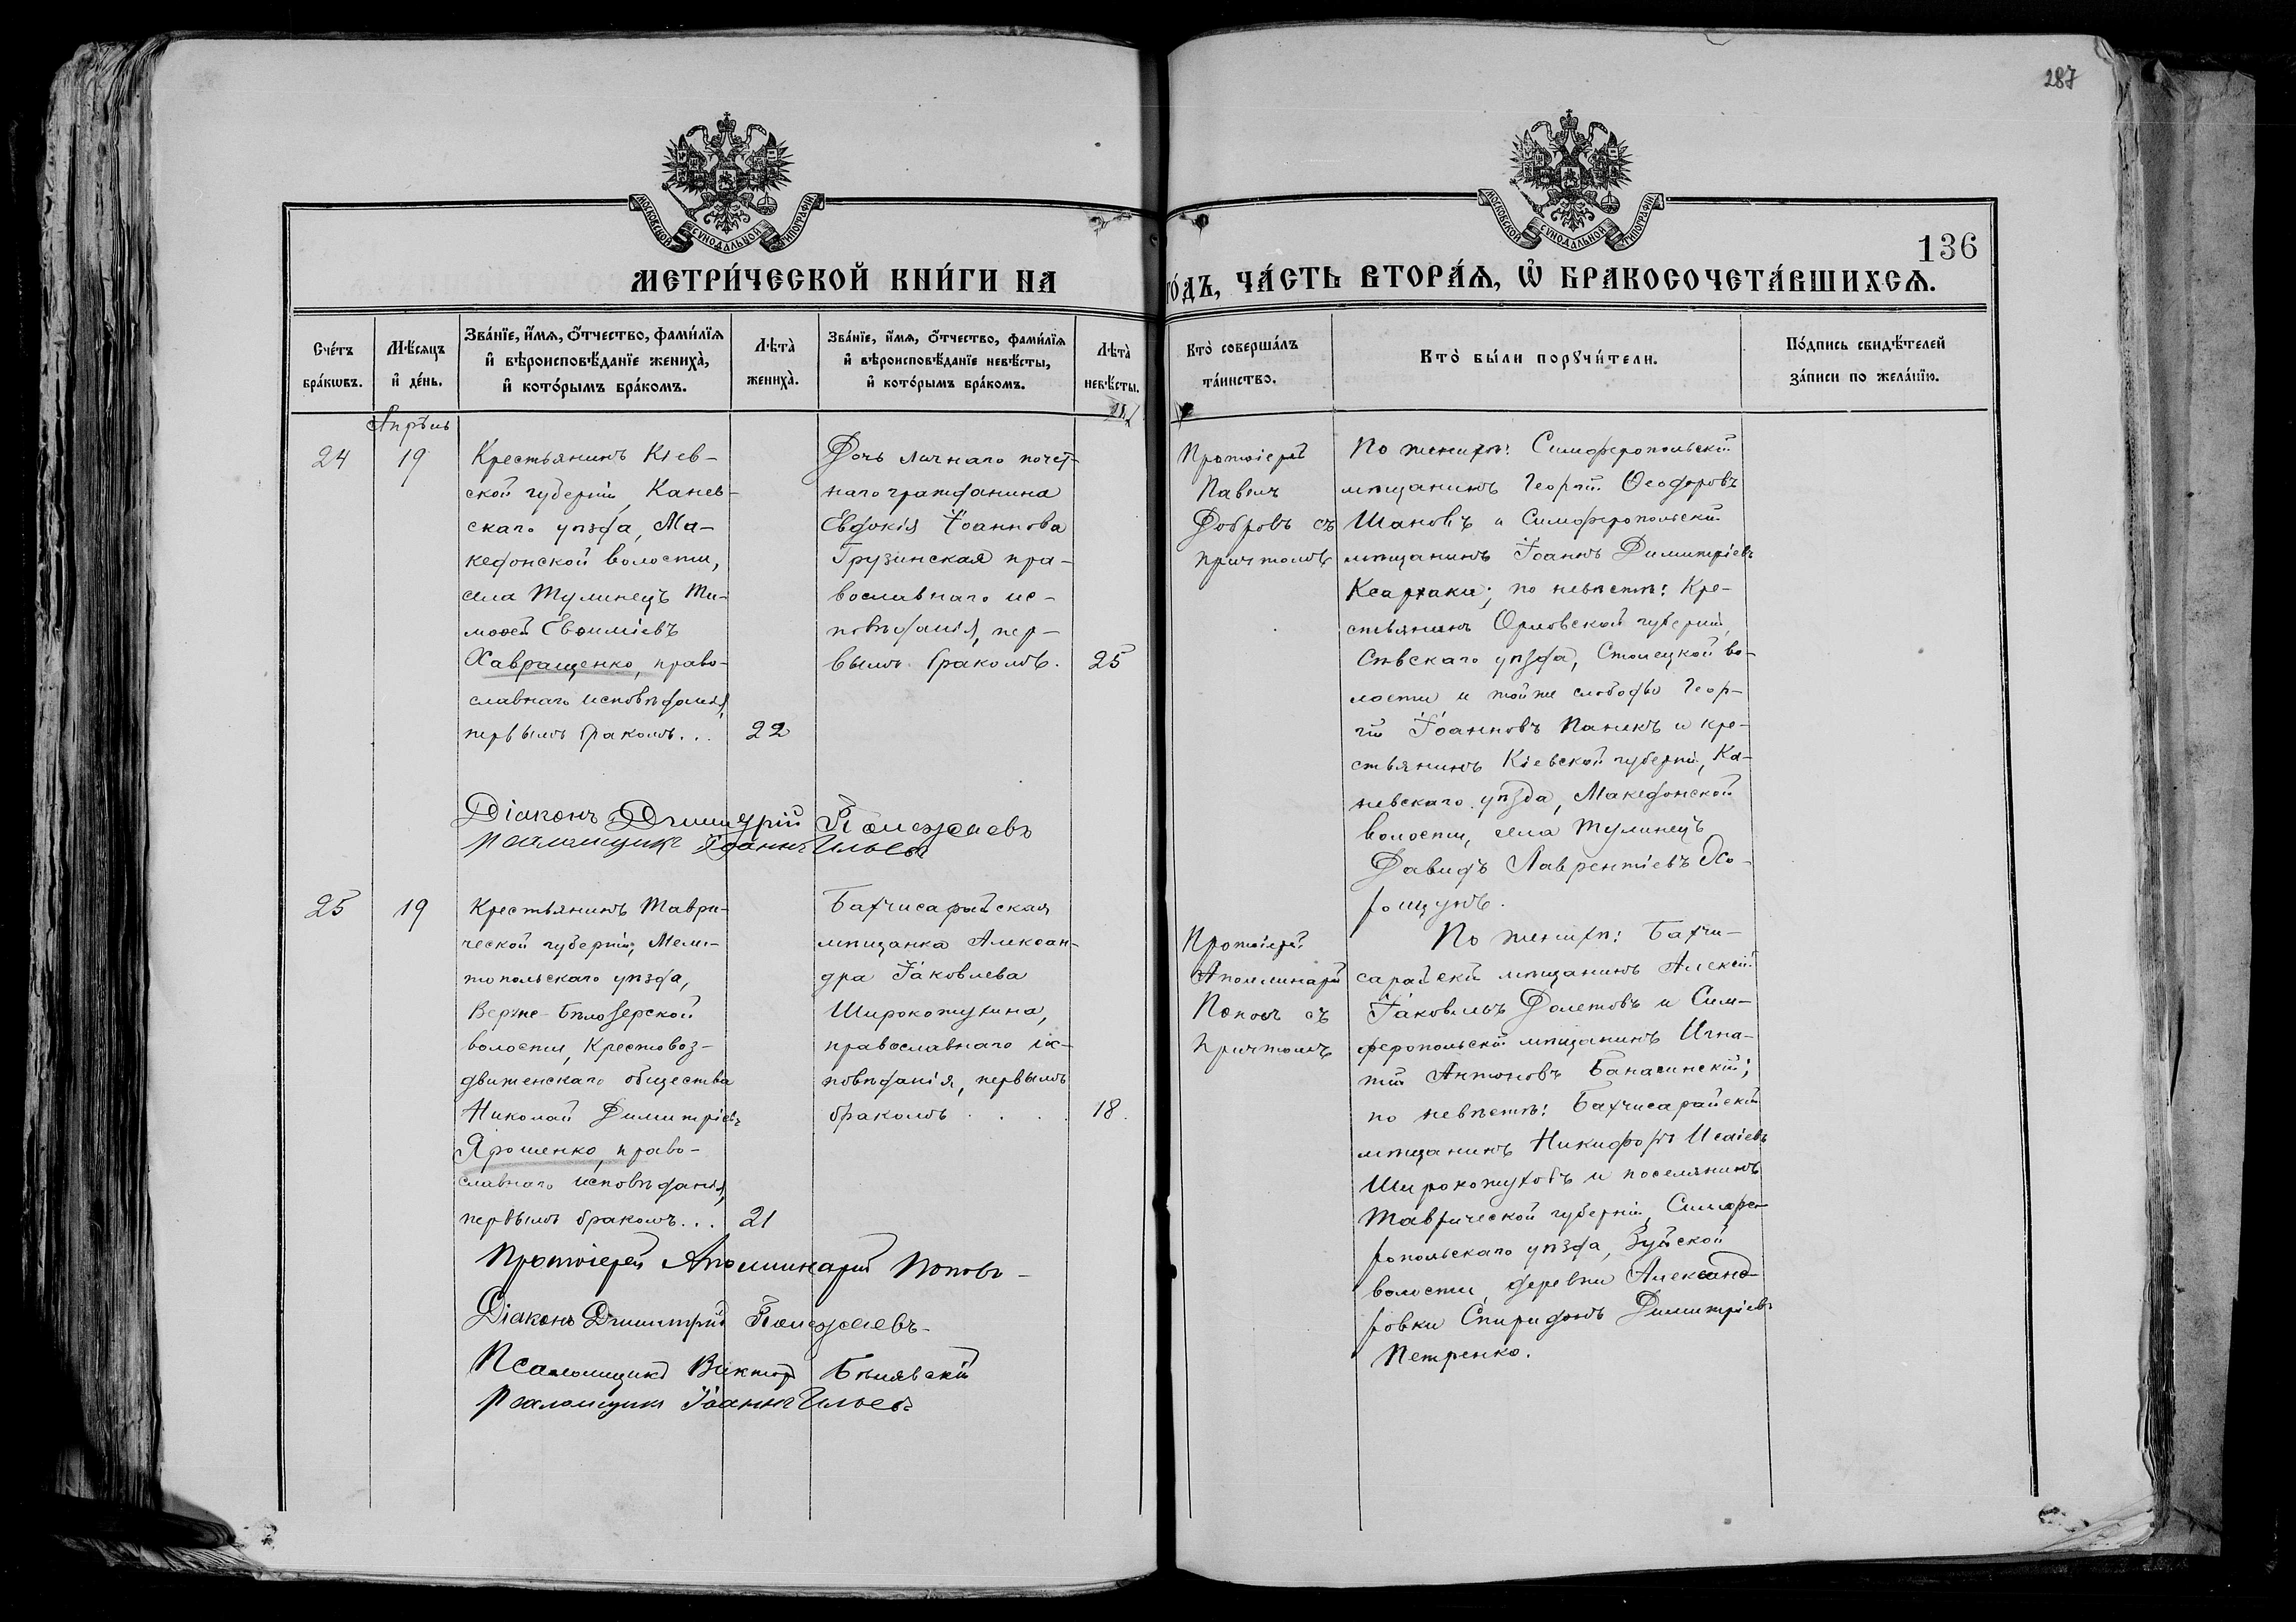 287
МОСКОВСКОЙ СУНОДАЛЬНОЙ ТИПОГРАФІИ
МОСКОВСКОЙ СУНОДАЛЬНОЙ ТИПОГРАФІИ
136
МЕТРИ́ЧЕСКОЙ КНИ́ГИ НА
ГО́ДЪ, ЧА́СТЬ ВТОРА́Ѧ, Ѽ БРАКОСОЧЕТА́ВШИХСѦ.
Сче́тъ
бра́кѡвъ.
Мѣ́сяцъ
и҆ де́нь.
Зва́нїе, и҆́мѧ, ѻ҆́тчество, фами́лїѧ
и҆ вѣроисповѣ́данїе жениха̀,
и҆ кото́рымъ бра́комъ.
Лѣта̀
жениха̀.
Зва́нїе, и҆́мѧ, ѻ҆́тчество, фами́лїѧ
и҆ вѣроисповѣ́данїе невѣ́сты,
и҆ кото́рымъ бра́комъ.
Лѣта̀
невѣ́сты.
Кто̀ соверша́лъ
та́инство.
Кто̀ бы́ли порꙋчи́тели.
По́дпись свидѣ́телей
за́писи по жела́нїю.
Апрѣль
24
19
Крестьянинъ Кіев-
ской губерніи, Канев-
скаго уѣзда, Ма-
кедонской волости,
села Тулинецъ Ти-
моѳей Евѳиміевъ
Хавращенко, право-
славнаго исповѣданія,
первымъ бракомъ...
22
Дочь личнаго почет-
наго гражданина
Евдокія Іоаннова
Грузинская пра-
вославнаго ис-
повѣданія, пер-
вымъ бракомъ.
25
Протоіерей
Павелъ
Добровъ съ
причтомъ
По женихѣ: Симферопольскій
мѣщанинъ Георгій Ѳеодоровъ
Шановъ и Симферопольскій
мѣщанинъ Іоаннъ Димитріевъ
Ксархаки; по невѣстѣ: Кре-
стьянинъ Орловской губерніи,
Сѣвскаго уѣзда, Столецкой во-
лости и той же слободы Геор-
гій Іоанновъ Панинъ и кре-
стьянинъ Кіевской губерніи, Ка-
невскаго уѣзда, Македонской
волости, села Тулинецъ
Давидъ Лаврентіевъ
Діаконъ Дмитрій
Псаломщикъ Іоаннъ Ильевъ
25
19
Крестьянинъ Таври-
ческой губерніи, Мели-
топольскаго уѣзда,
Верхне-Бѣлозерской
волости, Крестовоз-
движенскаго общества
Николай Димитріевъ
Ярошенко, право-
славнаго исповѣданія,
первымъ бракомъ...
21
Бахчисарайская
мѣщанка Алексан-
дра Іаковлева
Широкожухина,
православнаго ис-
повѣданія, первымъ
бракомъ . . .
18.
Протоіерей
Аполлинарій
Поповъ съ
причтомъ
По женихѣ: Бахчи-
сарайскій мѣщанинъ Алексій
Іаковлевъ Долетовъ и Сим-
феропольскій мѣщанинъ Игна-
тій Антоновъ Банасинскій;
по невѣстѣ: Бахчисарайскій
мѣщанинъ Никифоръ Исаіевъ
Широкожуховъ и поселянинъ
Таврической губерніи, Симфе-
ропольскаго уѣзда, Зуйской
волости, деревни Александ-
ровки Спиридонъ Димитріевъ
Петренко.
Протоіерей Аполлинарій Поповъ
Діаконъ Дмитрій
Псаломщикъ Викторъ Бѣлявскій
Псаломщикъ Іоаннъ Ильевъ